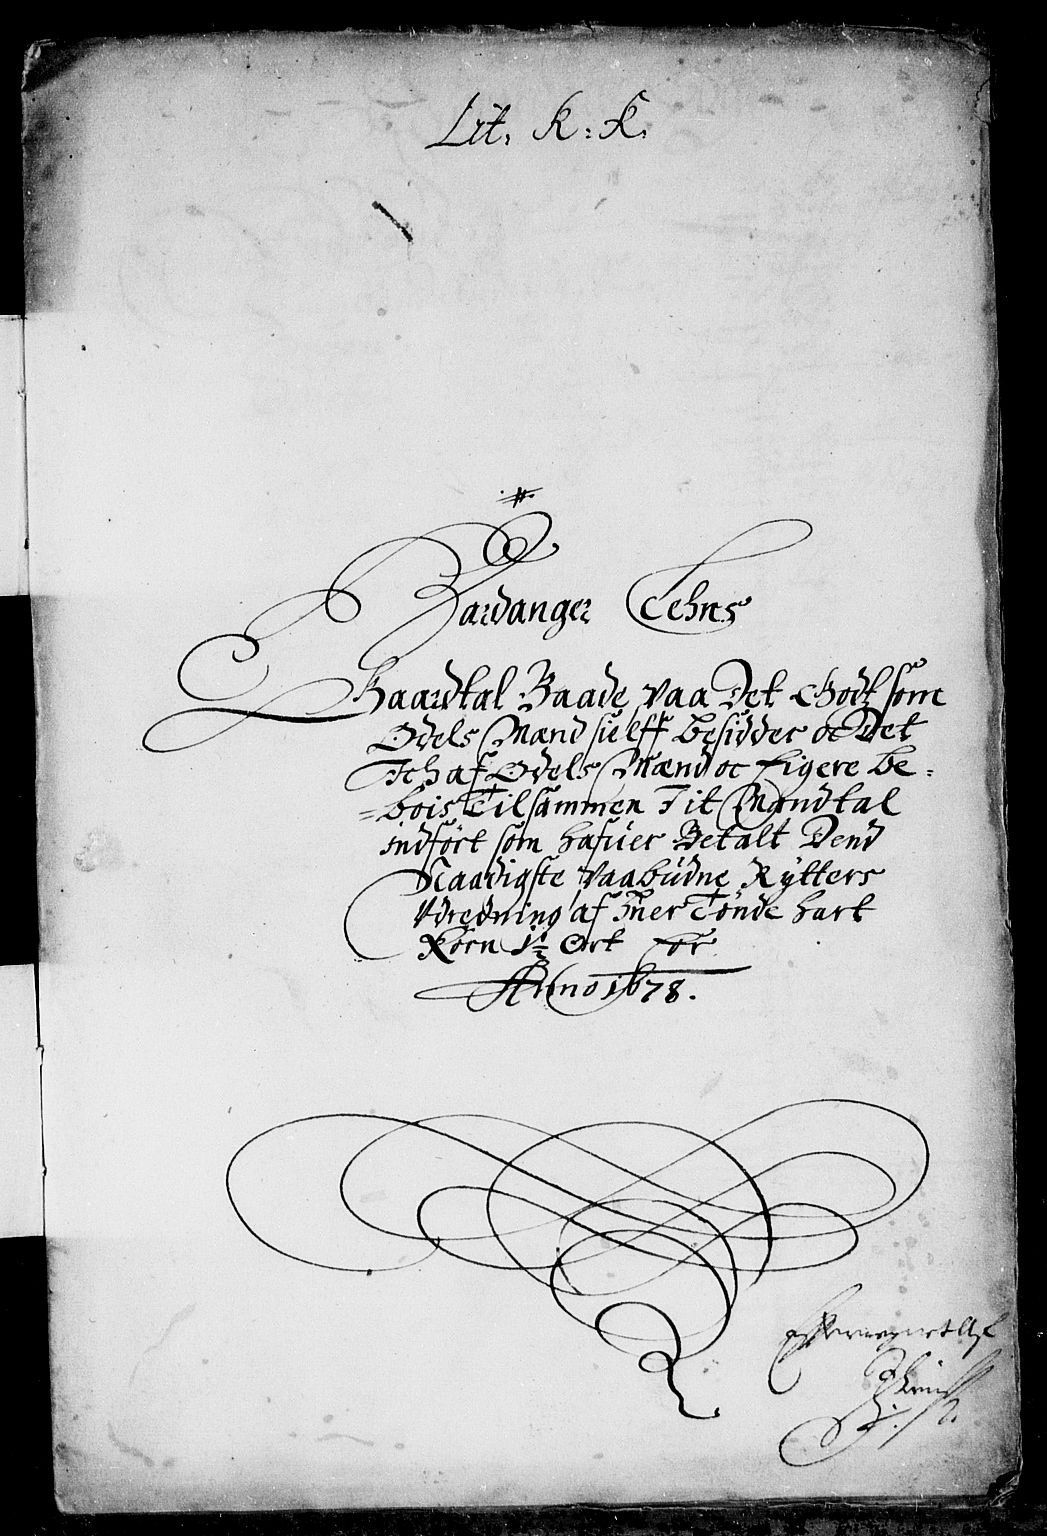 Lit. K: K.
Hardanger Lehns
Gaardtal Baade paa Det Godtz som
Odels Mænd sielff besidder oc Det
Ich af Odels Mænd oc Eigere be=
=bois Tilsammen I it Mandtal
indført som hafuer Betalt Dend
Naadigste Paabudne Rytters
Udredning af huer Tønde hart
Korn 1½ Ort for
Anno 1678.
Efterregnet Af